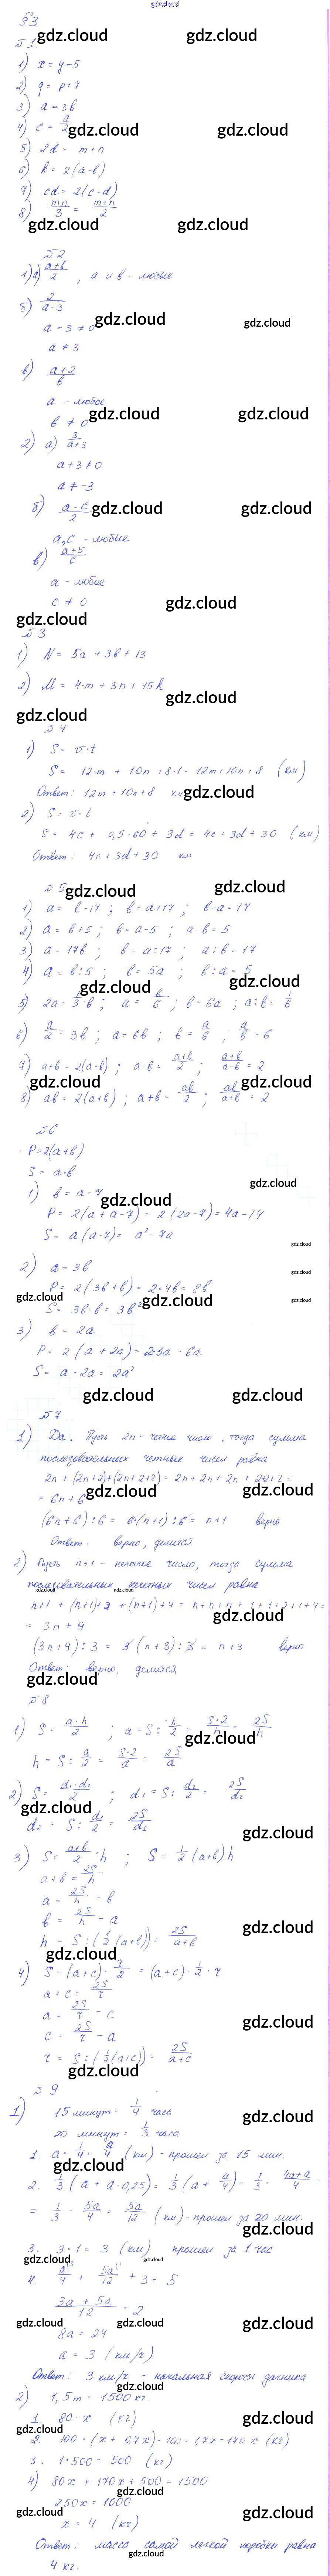 gdz.cloud
§3
№1.
1) x = y - 5
2) q = p + 7
3) a = 3b
4) c = a/2
5) 2d = m + n
6) k = 2(a-b)
7) cd = 2(c-d)
8) mn/3 = (m+n)/2
№2
1) а) (a+b)/2 , a и b - любые
б) 2/(a-3)
a - 3 ≠ 0
a ≠ 3
в) (a+2)/b
a - любое
b ≠ 0
2) а) 3/(a+3)
a + 3 ≠ 0
a ≠ -3
б) (a-c)/2
a, c - любые
в) (a+5)/c
a - любое
c ≠ 0
№3
1) N = 5a + 3b + 13
2) M = 4·m + 3n + 15k
№4
1) S = v·t
S = 12·m + 10n + 8·1 = 12m + 10n + 8 (км)
Ответ: 12m + 10n + 8 км
2) S = v·t
S = 4c + 0,5·60 + 3d = 4c + 3d + 30 (км)
Ответ: 4c + 3d + 30 км
№5
1) a = b - 17 ; b = a + 17 ; b - a = 17
2) a = b + 5 ; b = a - 5 ; a - b = 5
3) a = 17b ; b = a : 17 ; a : b = 17
4) a = b : 5 ; b = 5a ; b : a = 5
5) 2a = 1/3·b ; a = b/6 ; b = 6a ; a : b = 1/6
6) a/2 = 3b ; a = 6b ; b = a/6 ; a/b = 6
7) a+b = 2(a-b) ; a-b = (a+b)/2 ; (a+b)/(a-b) = 2
8) ab = 2(a+b) ; a+b = ab/2 ; ab/(a+b) = 2
№6
P = 2(a+b)
S = a·b
1) b = a - 7
P = 2(a + a - 7) = 2(2a-7) = 4a - 14
S = a(a-7) = a² - 7a
2) a = 3b
P = 2(3b + b) = 2·4b = 8b
S = 3b·b = 3b²
3) b = 2a
P = 2(a + 2a) = 2·3a = 6a
S = a·2a = 2a²
№7
1) Да. Пусть 2n - четное число, тогда сумма
последовательных четных чисел равна
2n + (2n+2) + (2n+2+2) = 2n + 2n + 2n + 2+2+2 =
= 6n + 6
(6n+6) : 6 = 6·(n+1) : 6 = n+1 верно
Ответ: верно, делится
2) Пусть n+1 - нечетное число, тогда сумма
последовательных нечетных чисел равна
n+1 + (n+1)+2 + (n+1)+4 = n+n+n + 1+1+2+1+4 =
= 3n + 9
(3n+9) : 3 = 3(n+3) : 3 = n+3 верно
Ответ: верно, делится
№8
1) S = a·h/2 ; a = S : h/2 = S·2/h = 2S/h
h = S : a/2 = S·2/a = 2S/a
2) S = d₁·d₂/2 ; d₁ = S : d₂/2 = 2S/d₂
d₂ = S : d₁/2 = 2S/d₁
3) S = (a+b)/2 · h ; S = 1/2(a+b)h
a + b = 2S/h
a = 2S/h - b
b = 2S/h - a
h = S : (1/2(a+b)) = 2S/(a+b)
4) S = (a+c)·r/2 = (a+c)·1/2·r
a + c = 2S/r
a = 2S/r - c
c = 2S/r - a
r = S : (1/2(a+c)) = 2S/(a+c)
№9
1) 15 минут = 1/4 часа
20 минут = 1/3 часа
1. a·1/4 = a/4 (км) - прошел за 15 мин.
2. 1/3(a + a·0,25) = 1/3(a + a/4) = 1/3 · (4a+a)/4 =
= 1/3 · 5a/4 = 5a/12 (км) - прошел за 20 мин.
3. 3·1 = 3 (км) прошел за 1 час
4. a/4 + 5a/12 + 3 = 5
(3a + 5a)/12 = 2
8a = 24
a = 3 (км/ч)
Ответ: 3 км/ч - начальная скорость дачника
2) 1,5 т = 1500 кг.
1. 80·x (кг)
2. 100·(x + 0,7x) = 100·1,7x = 170x (кг)
3. 1·500 = 500 (кг)
4) 80x + 170x + 500 = 1500
250x = 1000
x = 4 (кг)
Ответ: масса самой легкой коробки равна
4 кг